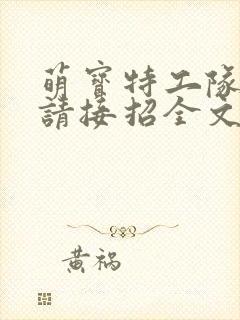 萌寶特工隊
請接招全文
黃禍